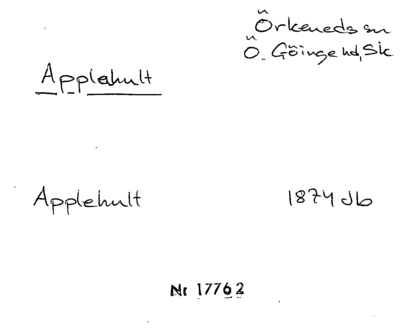 Örkeneds sn
Ö. Göinge hd, Sk
Applehult
Applehult 1874 Jb
Nr 17762